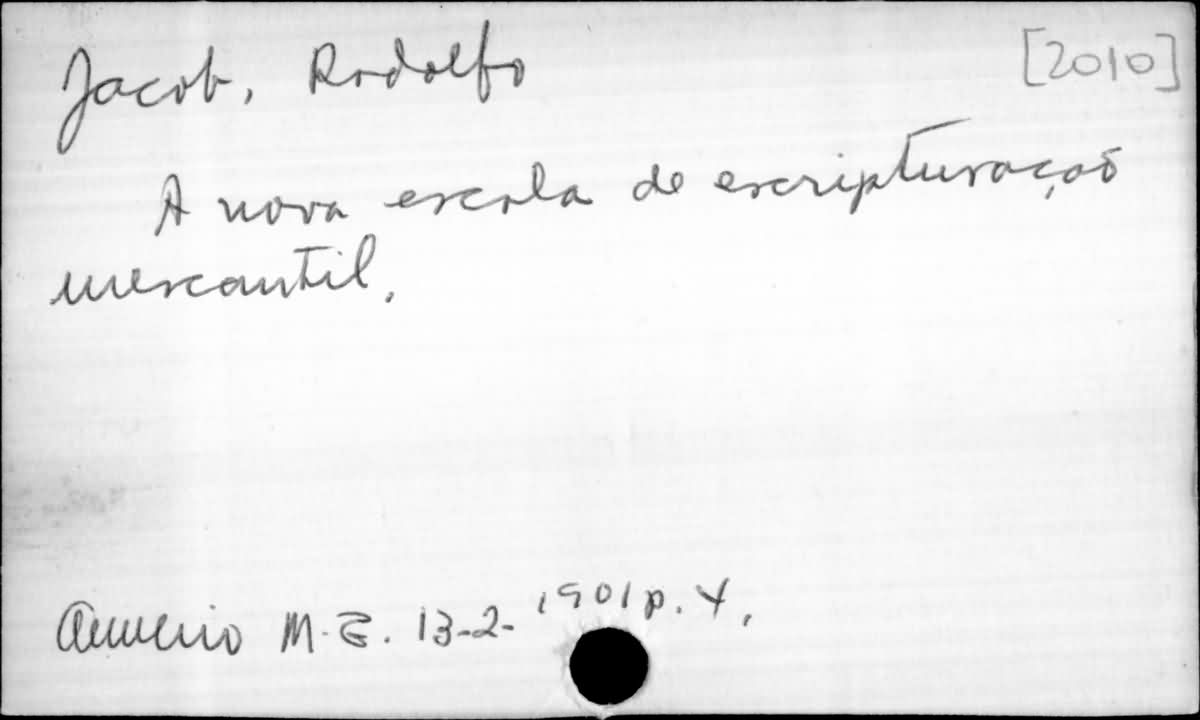 Jacob, Rodolfo [2010]
A nova escola de escripturação
mercantil.
M. G. 13-2-1901 p. 4.